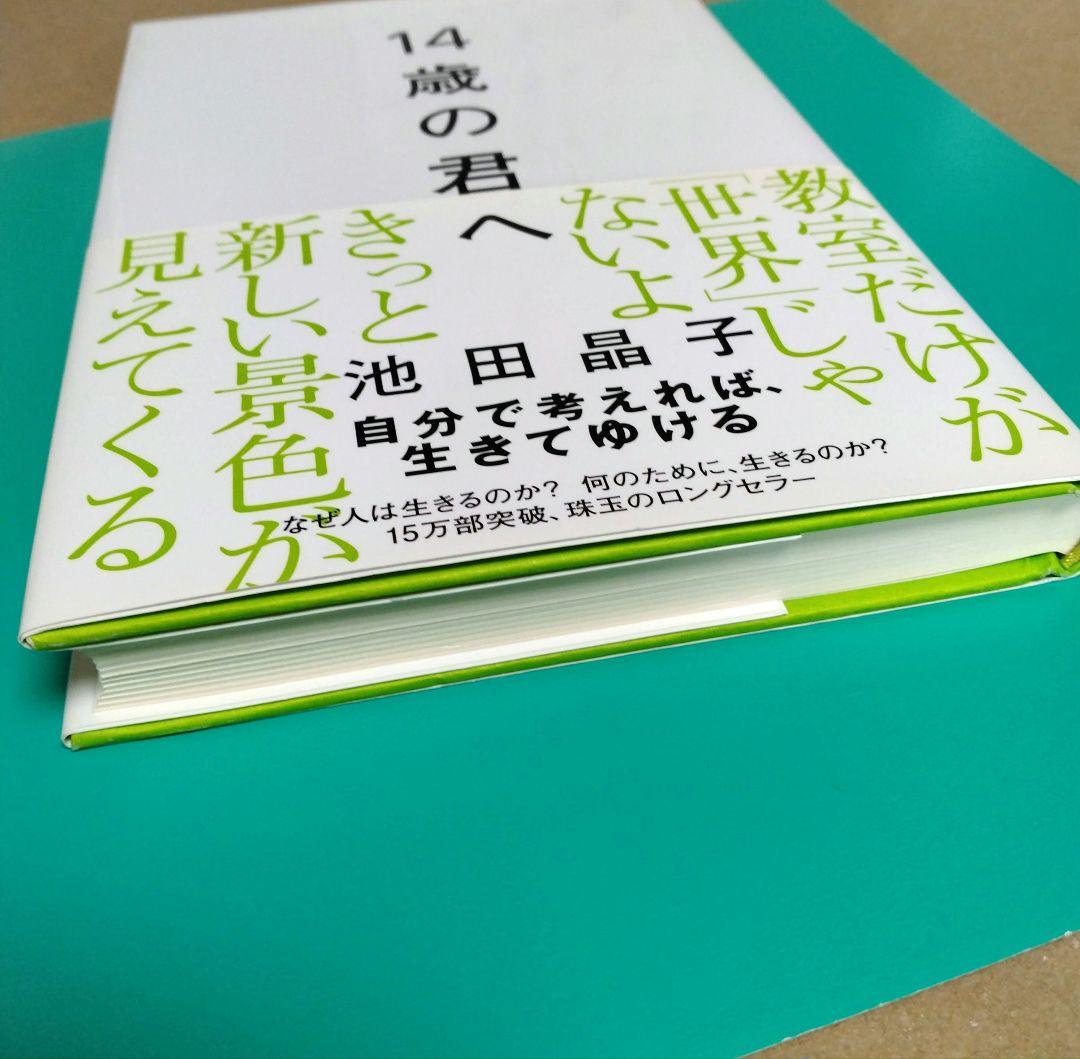 14歳の君へ
教室だけが
「世界」じゃ
ないよ
きっと
新しい景色が
見えてくる
池田晶子
自分で考えれば、
生きてゆける
なぜ人は生きるのか? 何のために、生きるのか?
15万部突破、珠玉のロングセラー